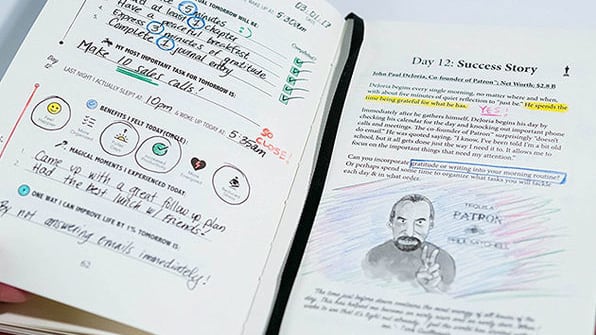 03.01.17
TOMORROW WILL BE:
5 minutes
WAKE UP AT: 5:35am
at least 1 chapter
Completed!
Have a peaceful breakfast
Express 3 minutes of gratitude
Complete 1 journal entry
MY MOST IMPORTANT TASK FOR TOMORROW IS:
Make 10 sales calls!
DAY 12
LAST NIGHT I ACTUALLY SLEPT AT: 10pm & WOKE UP TODAY AT: 5:35am
SO CLOSE!
BENEFITS I FELT TODAY (CIRCLE)
MAGICAL MOMENTS I EXPERIENCED TODAY:
Came up with a great follow up plan
Had the best lunch w/ friends
ONE WAY I CAN IMPROVE LIFE BY 1% TOMORROW IS:
By not answering emails immediately!
62
Day 12: Success Story
John Paul DeJoria, Co-founder of Patron™, Net Worth: $2.8 B
DeJoria begins every single morning, no matter where and when,
with about five minutes of quiet reflection to "just be." He spends the
time being grateful for what he has.
YES!
Immediately after he gathers himself, DeJoria begins his day by
checking his calendar for the day and knocking out important phone
calls and meetings. The co-founder of Patron™ surprisingly "doesn't
do email." He was quoted saying, "I know, I've been told I'm a bit old
school, but it all gets done just the way I need it to. It allows me to
focus on the important things that need my attention."
Can you incorporate gratitude or writing into your morning routine?
Or perhaps spend some time to organize what tasks you will tackle
each day & in what order.
TEQUILA
PATRON